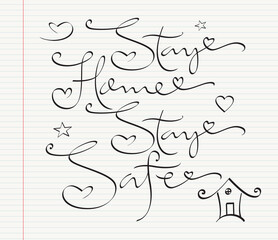 Stay
Home
Stay
Safe